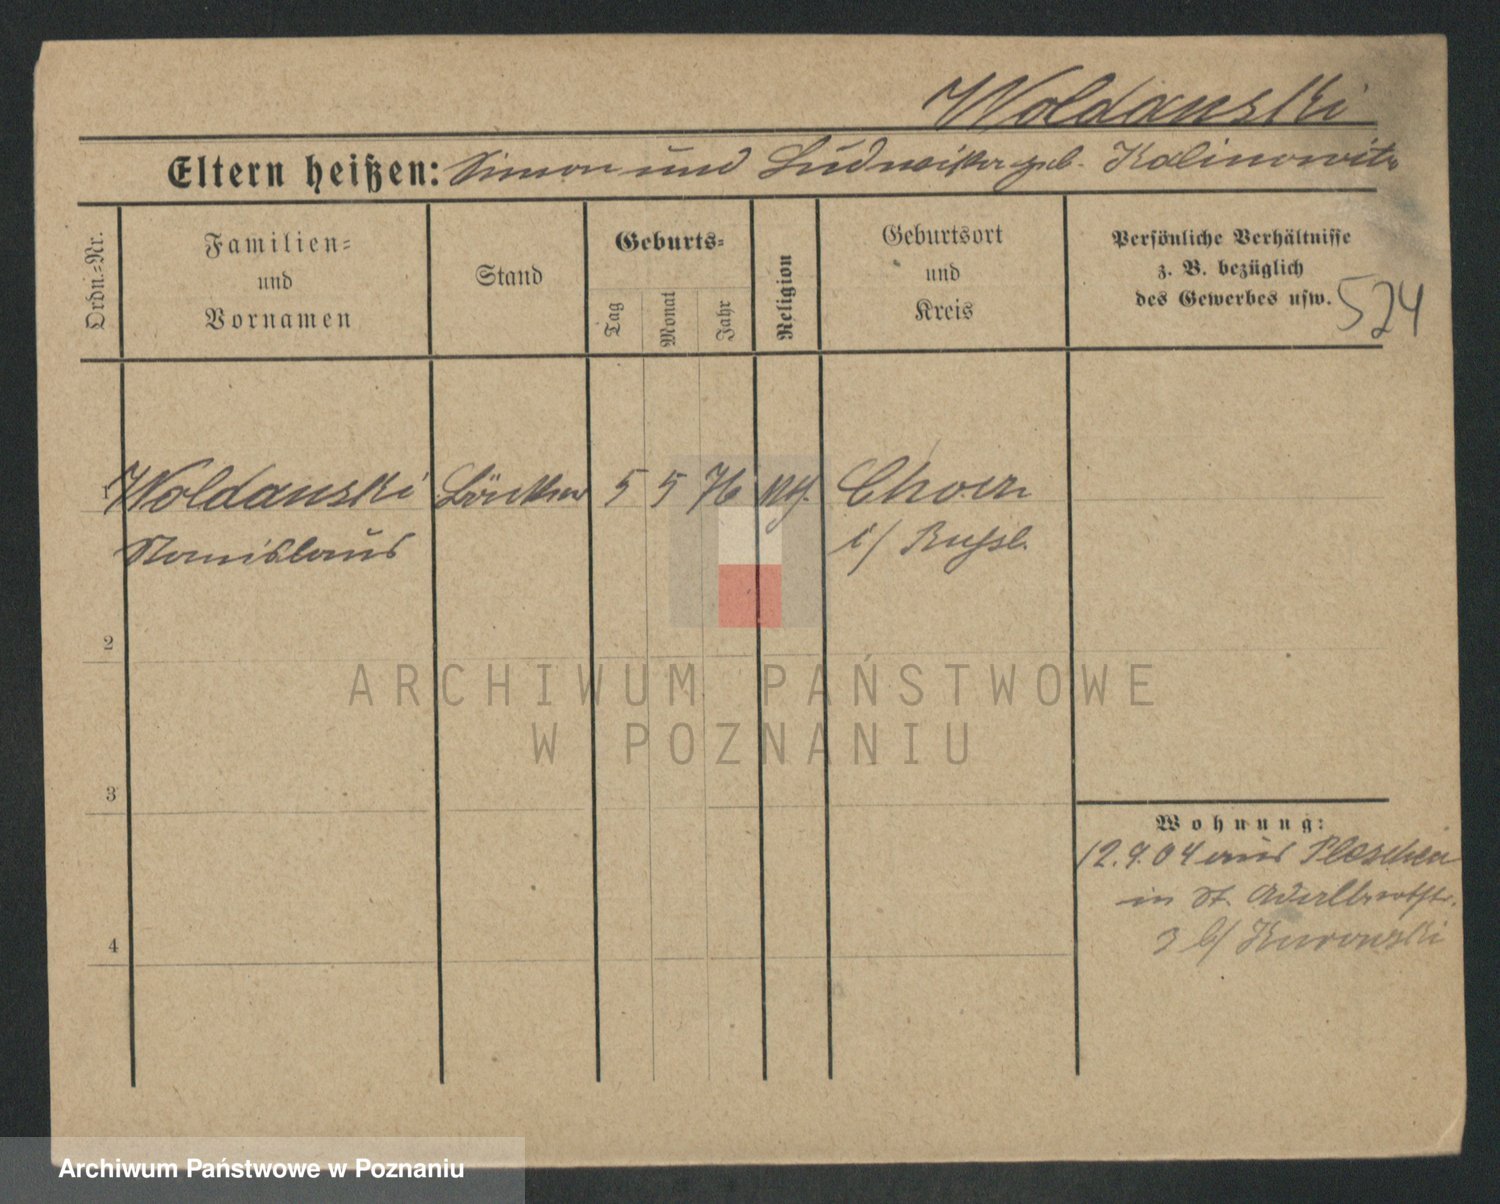 Woldanski
Eltern heißen: Simon und Ludwika geb. Kalinowitz
Ordn.-Nr.
Familien-
und
Vornamen
Stand
Geburts-
Tag
Monat
Jahr
Religion
Geburtsort
und
Kreis
Persönliche Verhältnisse
z. B. bezüglich
des Gewerbes usw.
524
1 Woldanski 5 5 76
Stanislaus i/ Russl.
2
ARCHIWUM PAŃSTWOWE
W POZNANIU
3
Wohnung:
12.9.04 aus Pleschen
in St. Adalbertstr.
3 b/ Kurowski
4
Archiwum Państwowe w Poznaniu